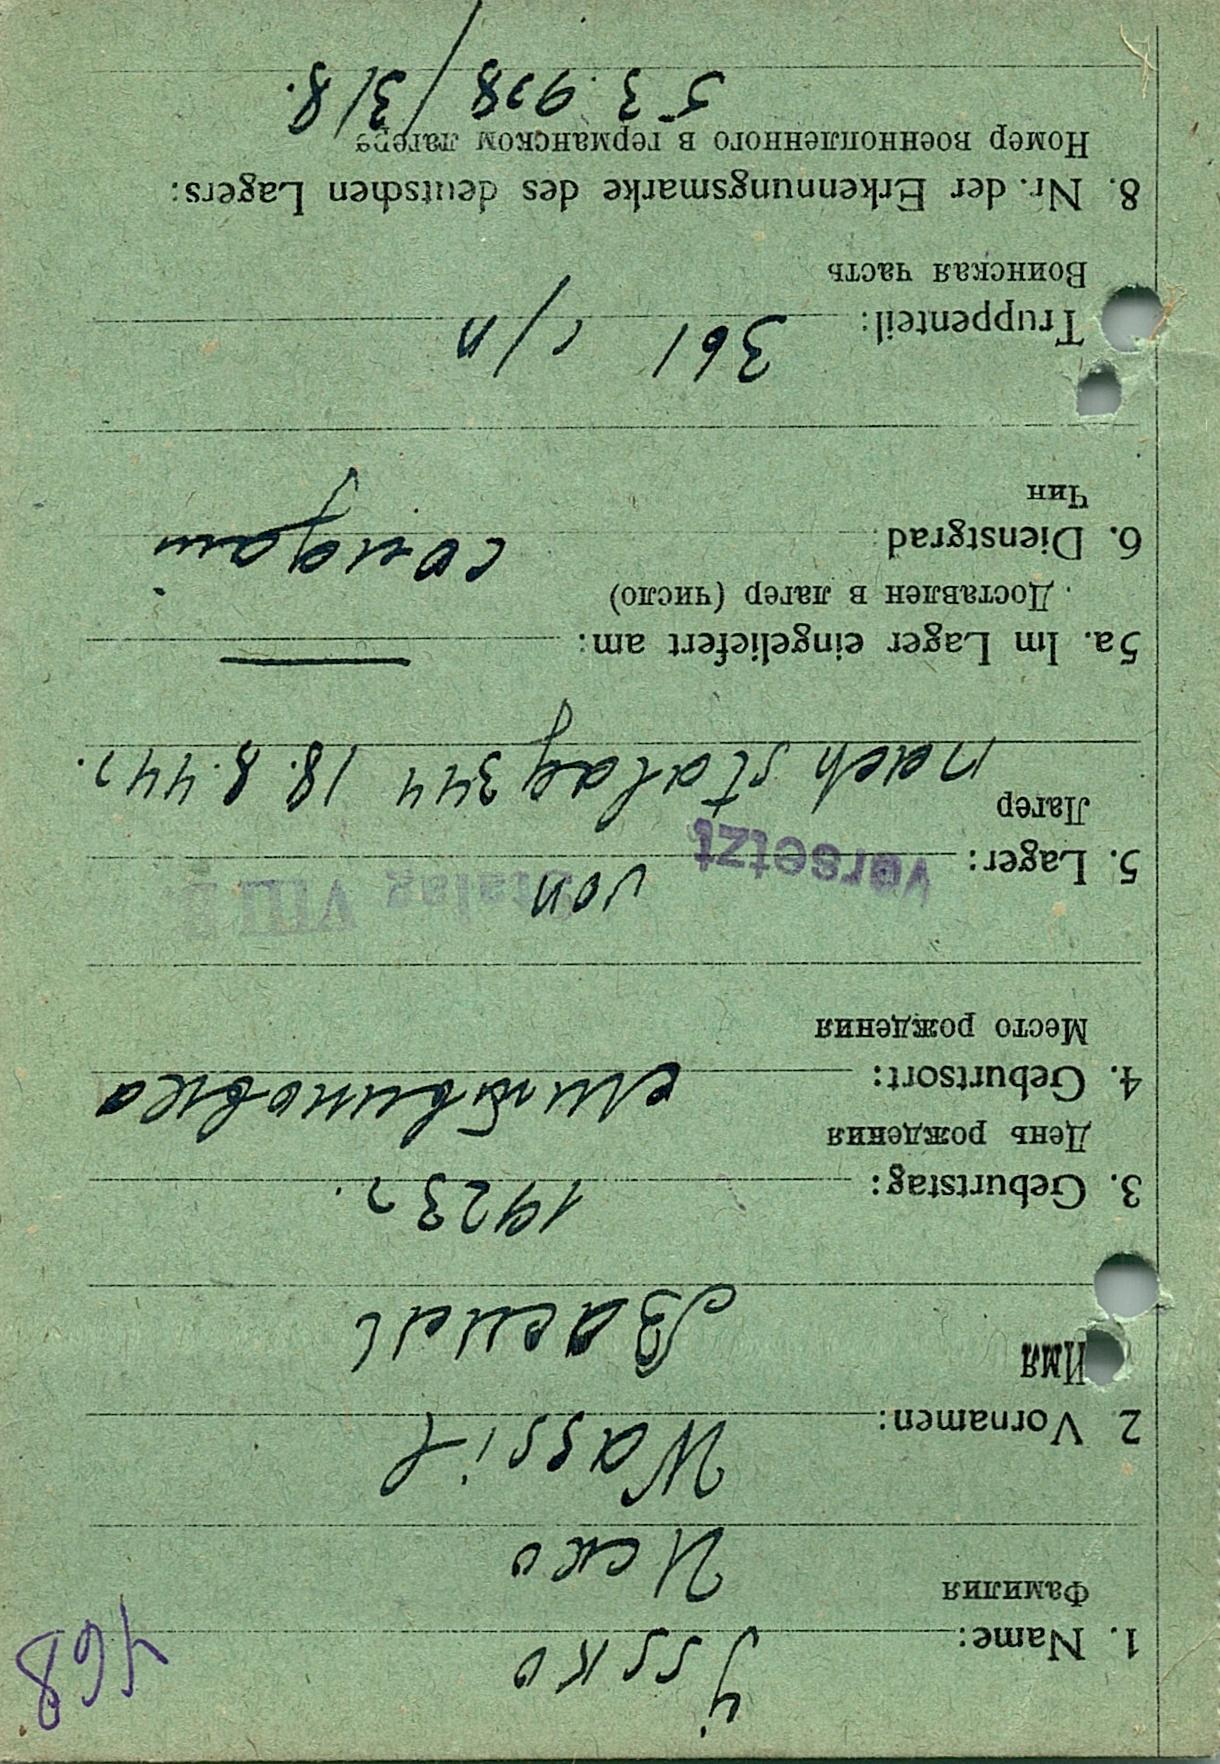 468
1. Name: Jssko
Фамилия
Иско
2 Vornamen: Wassil
Имя
Василь
3. Geburtstag: 1923 г.
День рождения
4. Geburtsort:
Место рождения
5. Lager: versetzt von Stalag VIII
Лагер
nach Stalag 344 18.8.44 г.
5a. Im Lager eingeliefert am: —
Доставлен в лагер (число)
6. Dienstgrad солдат
Чин
Truppenteil: 361 с/п
Воинская часть
8. Nr. der Erkennungsmarke des deutschen Lagers:
Номер военнопленного в германском лагере
53.998 / 318.